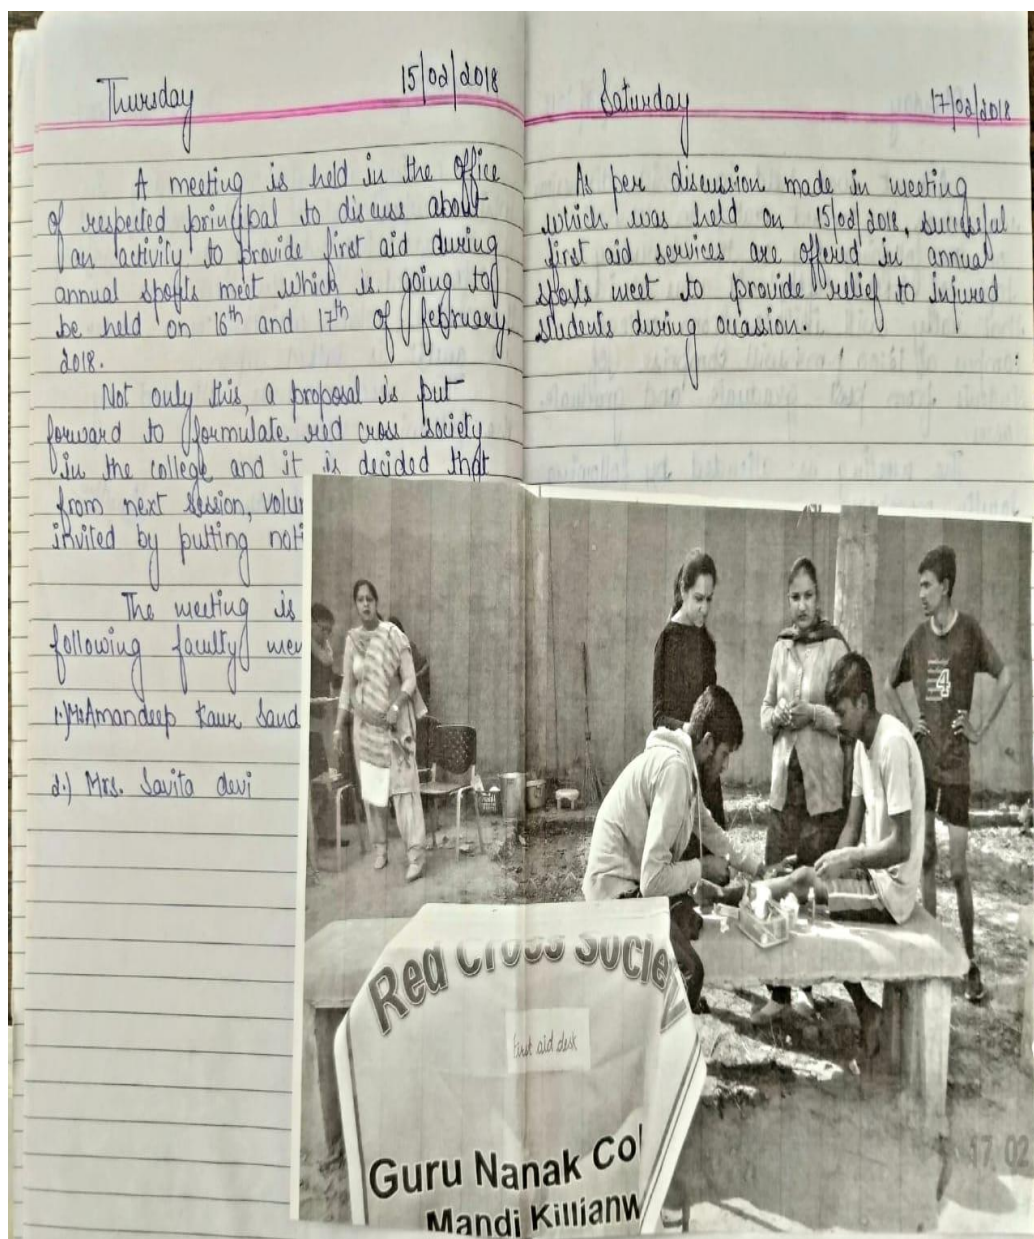 Thursday 15/02/2018
A meeting is held in the office
of respected principal to discuss about
an activity to provide first aid during
annual sports meet which is going to
be held on 16th and 17th of february,
2018.
Not only this, a proposal is put
forward to formulate red cross society
in the college and it is decided that
from next session, volu
invited by putting noti
The meeting is
following faculty mem
1.) Ms Amandeep Kaur Sand
2.) Mrs. Savita devi
Saturday 17/02/2018
As per discussion made in meeting
which was held on 15/02/2018, successful
first aid services are offered in annual
sports meet to provide relief to injured
students during ouassion.
4
Red Cross Socie
first aid desk
Guru Nanak Col
Mandi Killianw
17 02